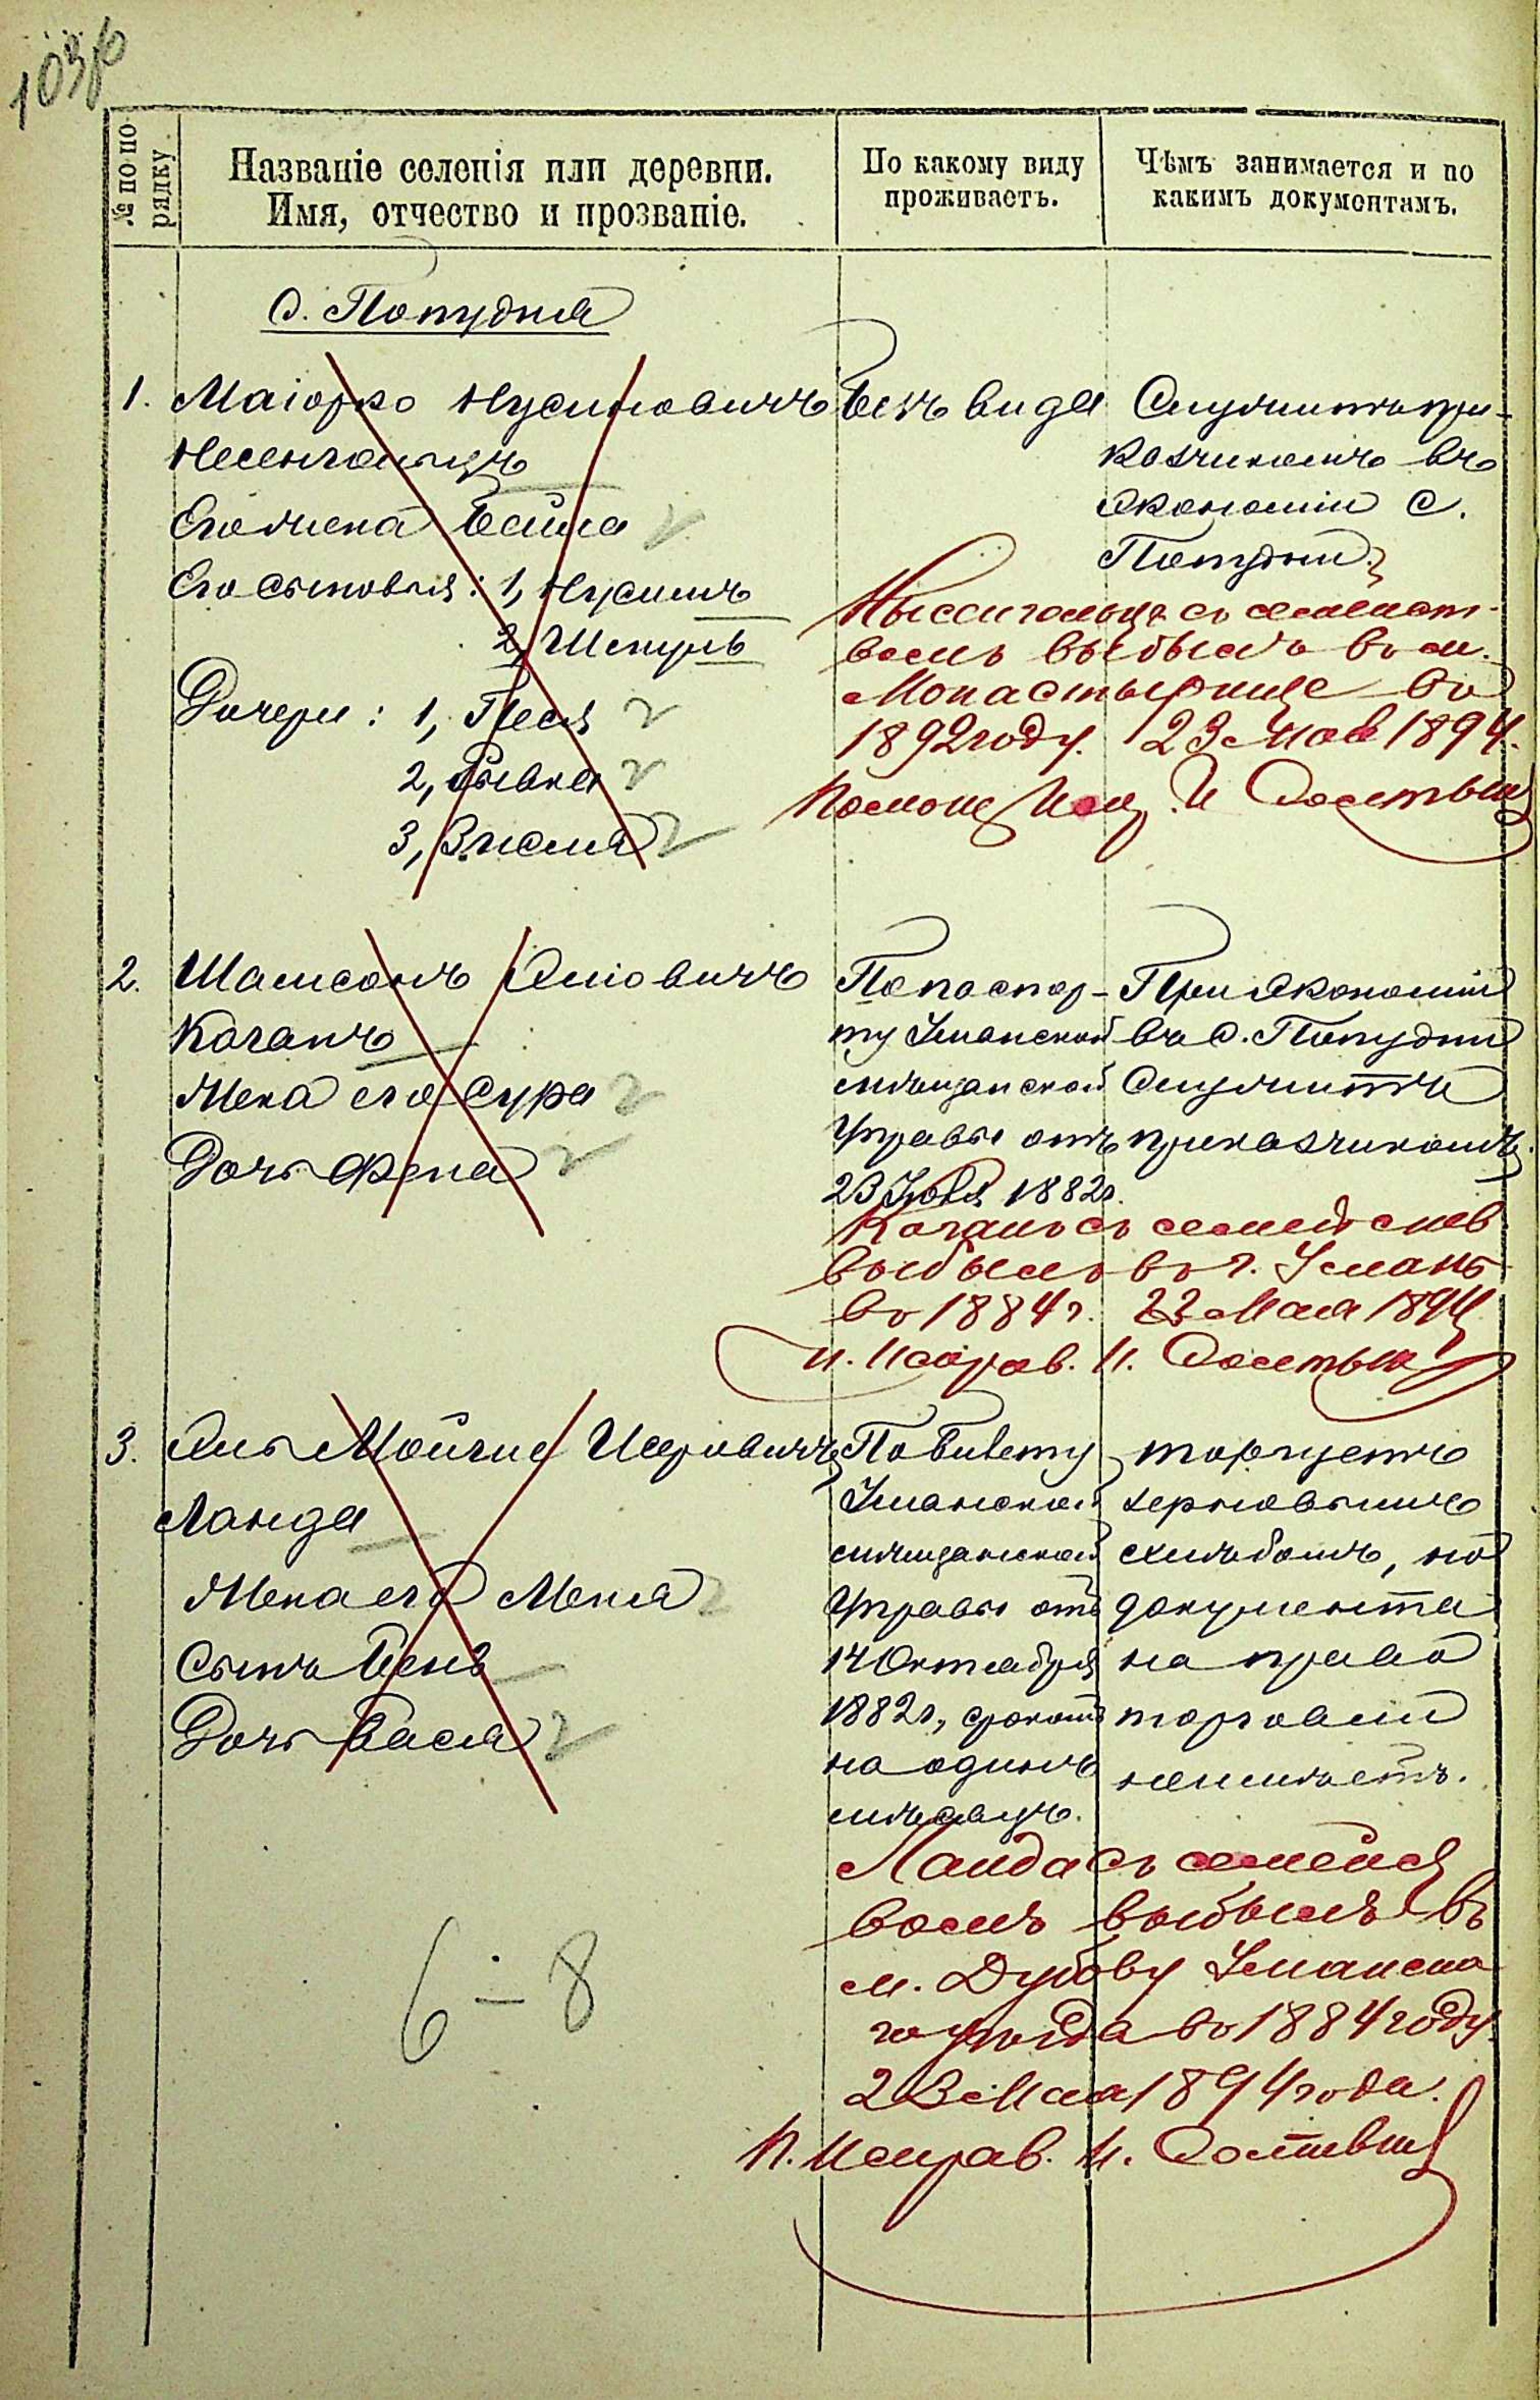 № по по-
рядку
Названіе селенія или деревни.
Имя, отчество и прозваніе.
По какому виду
проживаетъ.
Чѣмъ занимается и по
какимъ документамъ.
с. Попудня
1. Маіорко Нусиновичъ
Несенгольцъ
Его жена Бейла
Его сыновья: 1, Нусинъ
2, Шепуль
Дочери: 1, Песя
2, Рывка
3, Зисля
Безъ вида
Служитъ при-
казчикомъ въ
экономіи с.
Попудни.
съ семейст-
вомъ выбылъ въ м.
Монастырище въ
1892 году. 23 Мая 1894.
2. Шамсонъ Əліовичъ
Коганъ
Жена его Сура
Дочь Фена
По паспор-
ту Уманской
мѣщанской
Управы отъ
23 1882г.
При экономіи
въ с. Попудни
служитъ
приказчикомъ.
Коганъ съ семейством
выбылъ въ г. Умань
въ 1884г. 23 Мая 1894
П. Исправ. И.
3. Эль Мойше Исеровичъ
Ланда
Жена его Меня
Сынъ Бень
Дочь Бася
По билету
Уманской
мѣщанской
Управы отъ
14 Октября
1882г., срокомъ
на одинъ
мѣсяцъ.
торгуетъ
зерновымъ
хлѣбомъ, но
документа
на право
торговли
неимѣетъ.
Ланда съ семейст
вомъ выбылъ въ
м. Дубову Уманска
го уѣзда въ 1884 году.
23 Мая 1894 года.
П. Исправ. И.
6 - 8